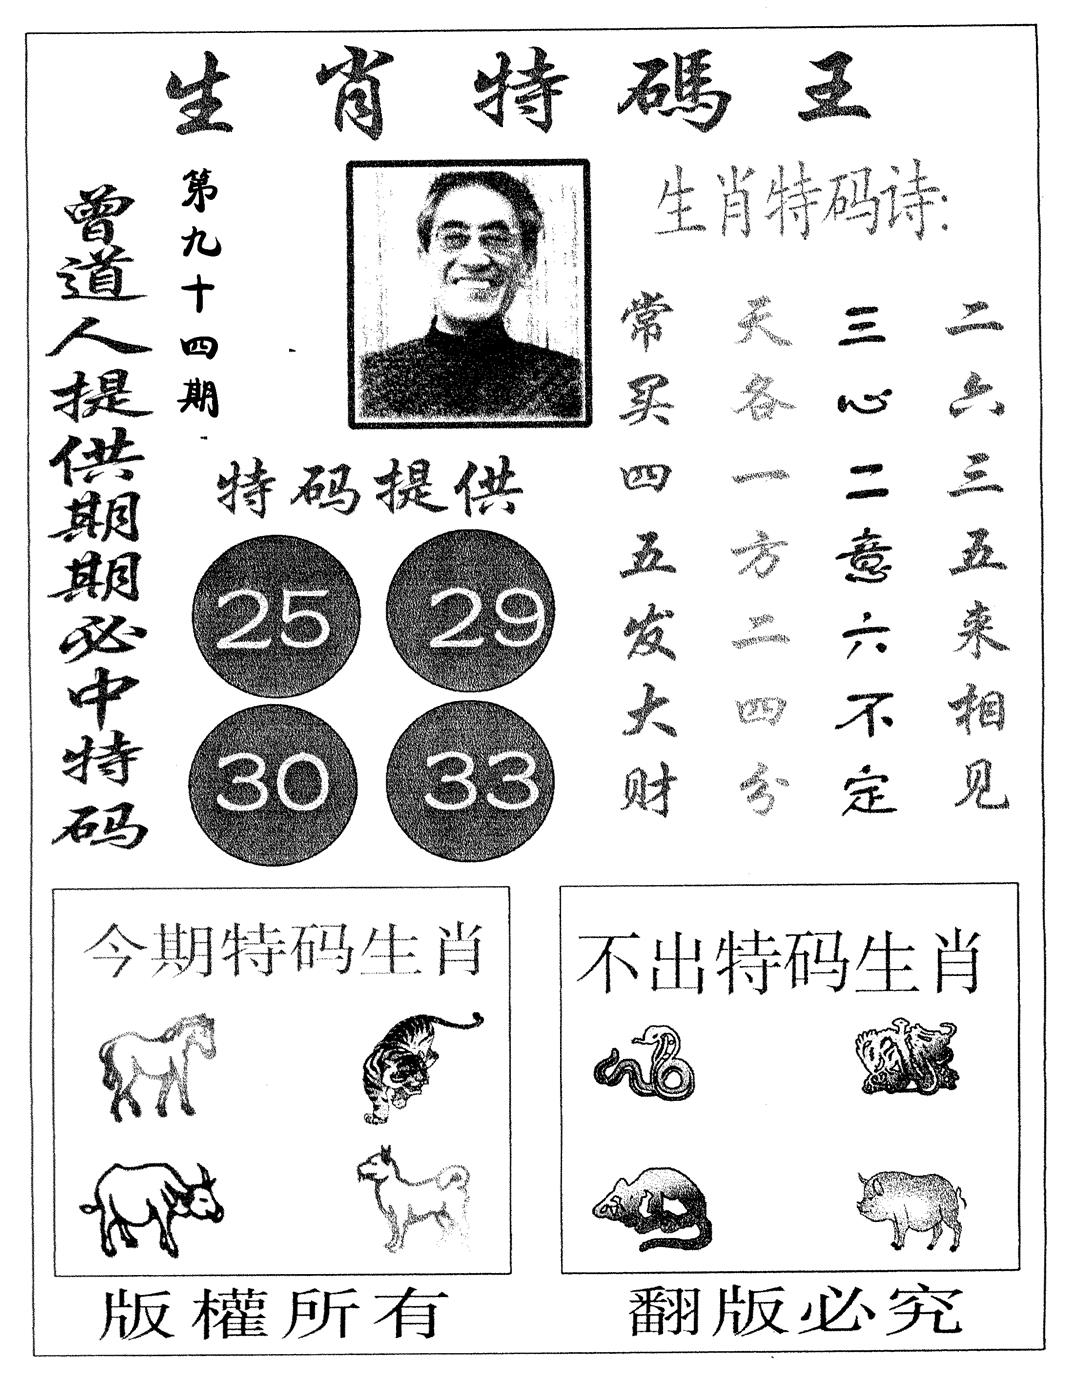 生肖特碼王
曾道人提供期期必中特码
第九十四期
生肖特码诗:
二六三五来相见
三心二意六不定
天各一方二四分
常买四五发大财
特码提供
25 29
30 33
今期特码生肖
不出特码生肖
版權所有
翻版必究